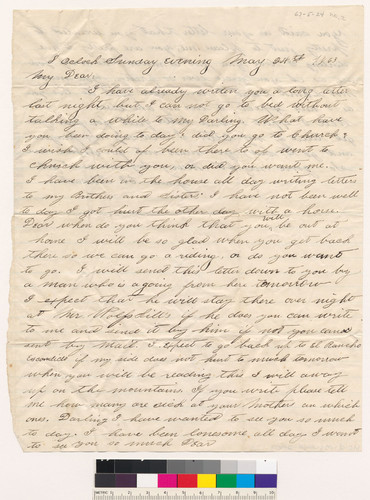 63-5-24
7 Oclock Sunday evening May 24th 1863
My Dear.
I have already writen you a long letter
last night, but I can not go to bed without
talking a while to my Darling. What have
you been doing to day? did you go to Church?
I wish I could of been there to of went to
church with you, or did you want me.
I have been in the house all day writing letters
to my Brother and Sister. I have not been well
to day I got hurt the other day with a horse.
Dear when do you think that you will be out at
home I will be so glad when you get back
there so we can go a riding, or do you want
to go. I will send this letter down to you by
a man who is a going from here tomorrow
I expect that he will stay there over night
at Mr Wolfskills if he does you can write
to me and send it by him if not you can
sent by Mail. I expect to go back up to El Rancho
if my side does not hurt to much tomorrow
when you will be reading this I will away
up on the mountains If you writ please tell
me how many are sick at your Mother an which
ones. Darling I have wanted to see you so much
to day. I have been lonesome all day I want
to see you so much Dear